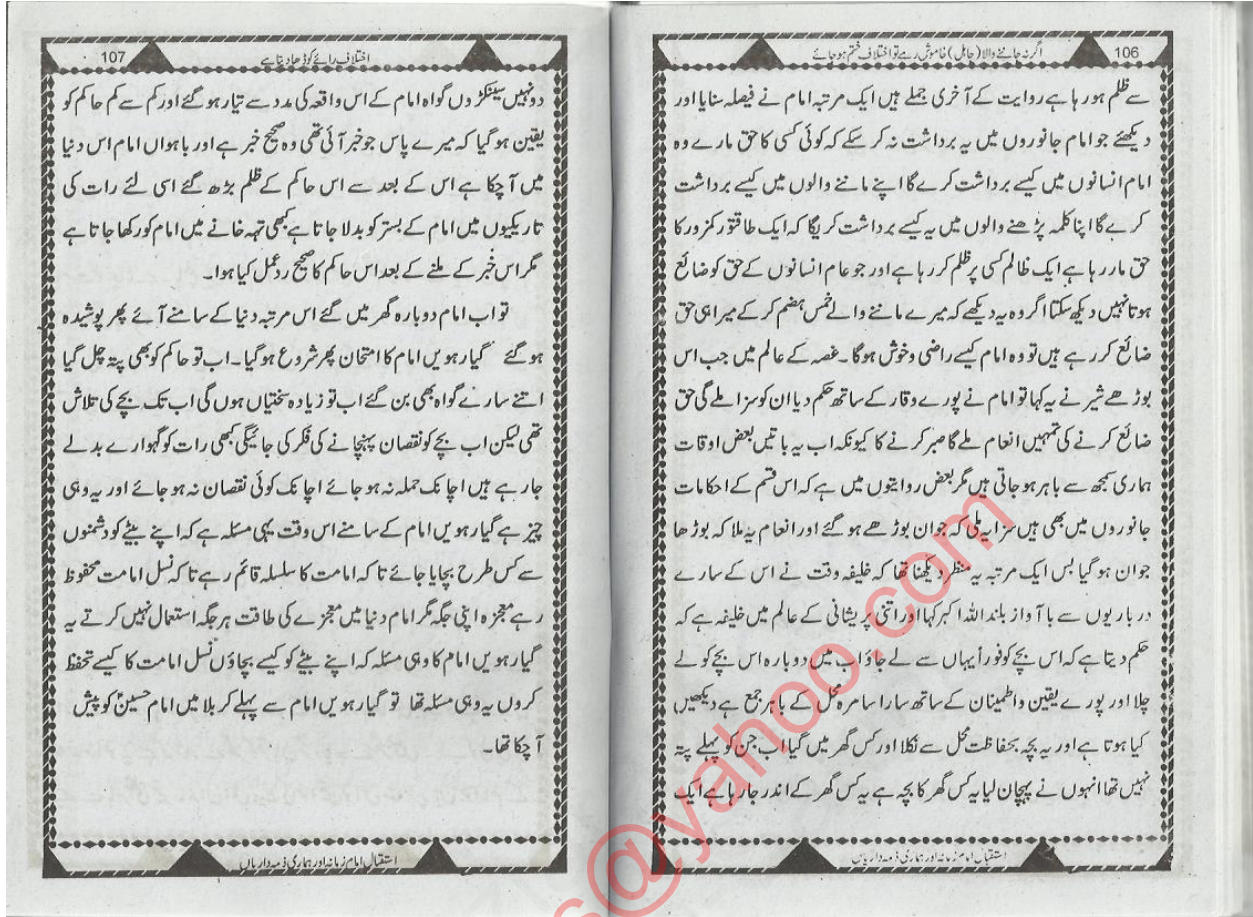 106
اگر نہ جاننے والا (جاہل) خاموش رہے تو اختلاف ختم ہو جائے
سے ظلم ہو رہا ہے روایت کے آخری جملے ہیں ایک مرتبہ امام نے فیصلہ سنایا اور
دیکھئے جو امام جانوروں میں یہ برداشت نہ کر سکے کہ کوئی کسی کا حق مارے وہ
امام انسانوں میں کیسے برداشت کرے گا اپنے ماننے والوں میں کیسے برداشت
کرے گا اپنا کلمہ پڑھنے والوں میں یہ کیسے برداشت کریگا کہ ایک طاقتور کمزور کا
حق مار رہا ہے ایک ظالم کسی پر ظلم کر رہا ہے اور جو عام انسانوں کے حق کو ضائع
ہوتا نہیں دیکھ سکتا اگر وہ یہ دیکھے کہ میرے ماننے والے خمس ہضم کر کے میرا ہی حق
ضائع کر رہے ہیں تو وہ امام کیسے راضی و خوش ہوگا۔ غصہ کے عالم میں جب اس
بوڑھے شیر نے یہ کہا تو امام نے پورے وقار کے ساتھ حکم دیا ان کو سزا ملے گی حق
ضائع کرنے کی تمہیں انعام ملے گا صبر کرنے کا کیونکہ اب یہ باتیں بعض اوقات
ہماری سمجھ سے باہر ہو جاتی ہیں مگر بعض روایتوں میں ہے کہ اس قسم کے احکامات
جانوروں میں بھی ہیں سزا یہ ملی کہ جوان بوڑھے ہو گئے اور انعام یہ ملا کہ بوڑھا
جوان ہو گیا بس ایک مرتبہ یہ منظر دیکھنا تھا کہ خلیفہ وقت نے اس کے سارے
درباریوں سے با آواز بلند اللہ اکبر کہا اور اتنی پریشانی کے عالم میں خلیفہ ہے کہ
حکم دیتا ہے کہ اس بچے کو فوراً یہاں سے لے جاؤ اب میں دوبارہ اس بچے کو لے
چلا اور پورے یقین و اطمینان کے ساتھ سارا سامرہ محل کے باہر جمع ہے دیکھیں
کیا ہوتا ہے اور یہ بچہ بحفاظت محل سے نکلا اور کس گھر میں گیا اب جن کو پہلے پتہ
نہیں تھا انہوں نے پہچان لیا یہ کس گھر کا بچہ ہے یہ کس گھر کے اندر جا رہا ہے ایک
استقبال امام زمانہ اور ہماری ذمہ داریاں
107
اختلاف رائے کو ڈھا دیتا ہے
دو نہیں سینکڑوں گواہ امام کے اس واقعہ کی مدد سے تیار ہو گئے اور کم سے کم حاکم کو
یقین ہو گیا کہ میرے پاس جو خبر آئی تھی وہ صحیح خبر ہے اور باہواں امام اس دنیا
میں آ چکا ہے اس کے بعد سے اس حاکم کے ظلم بڑھ گئے اسی لئے رات کی
تاریکیوں میں امام کے بستر کو بدلا جاتا ہے کبھی تہہ خانے میں امام کو رکھا جاتا ہے
مگر اس خبر کے ملنے کے بعد اس حاکم کا صحیح ردعمل کیا ہوا۔
تو اب امام دوبارہ گھر میں گئے اس مرتبہ دنیا کے سامنے آئے پھر پوشیدہ
ہو گئے گیارہویں امام کا امتحان پھر شروع ہو گیا۔ اب تو حاکم کو بھی پتہ چل گیا
اتنے سارے گواہ بھی بن گئے اب تو زیادہ سختیاں ہوں گی اب تک بچے کی تلاش
تھی لیکن اب بچے کو نقصان پہنچانے کی فکر کی جائیگی کبھی رات کو گہوارے بدلے
جا رہے ہیں اچانک حملہ نہ ہو جائے اچانک کوئی نقصان نہ ہو جائے اور یہ وہی
چیز ہے گیارہویں امام کے سامنے اس وقت یہی مسئلہ ہے کہ اپنے بیٹے کو دشمنوں
سے کس طرح بچایا جائے تاکہ امامت کا سلسلہ قائم رہے تاکہ نسل امامت محفوظ
رہے معجزہ اپنی جگہ مگر امام دنیا میں معجزے کی طاقت ہر جگہ استعمال نہیں کرتے یہ
گیارہویں امام کا وہی مسئلہ کہ اپنے بیٹے کو کیسے بچاؤں نسل امامت کا کیسے تحفظ
کروں یہ وہی مسئلہ تھا تو گیارہویں امام سے پہلے کربلا میں امام حسینؑ کو پیش
آ چکا تھا۔
استقبال امام زمانہ اور ہماری ذمہ داریاں
s@yahoo.com